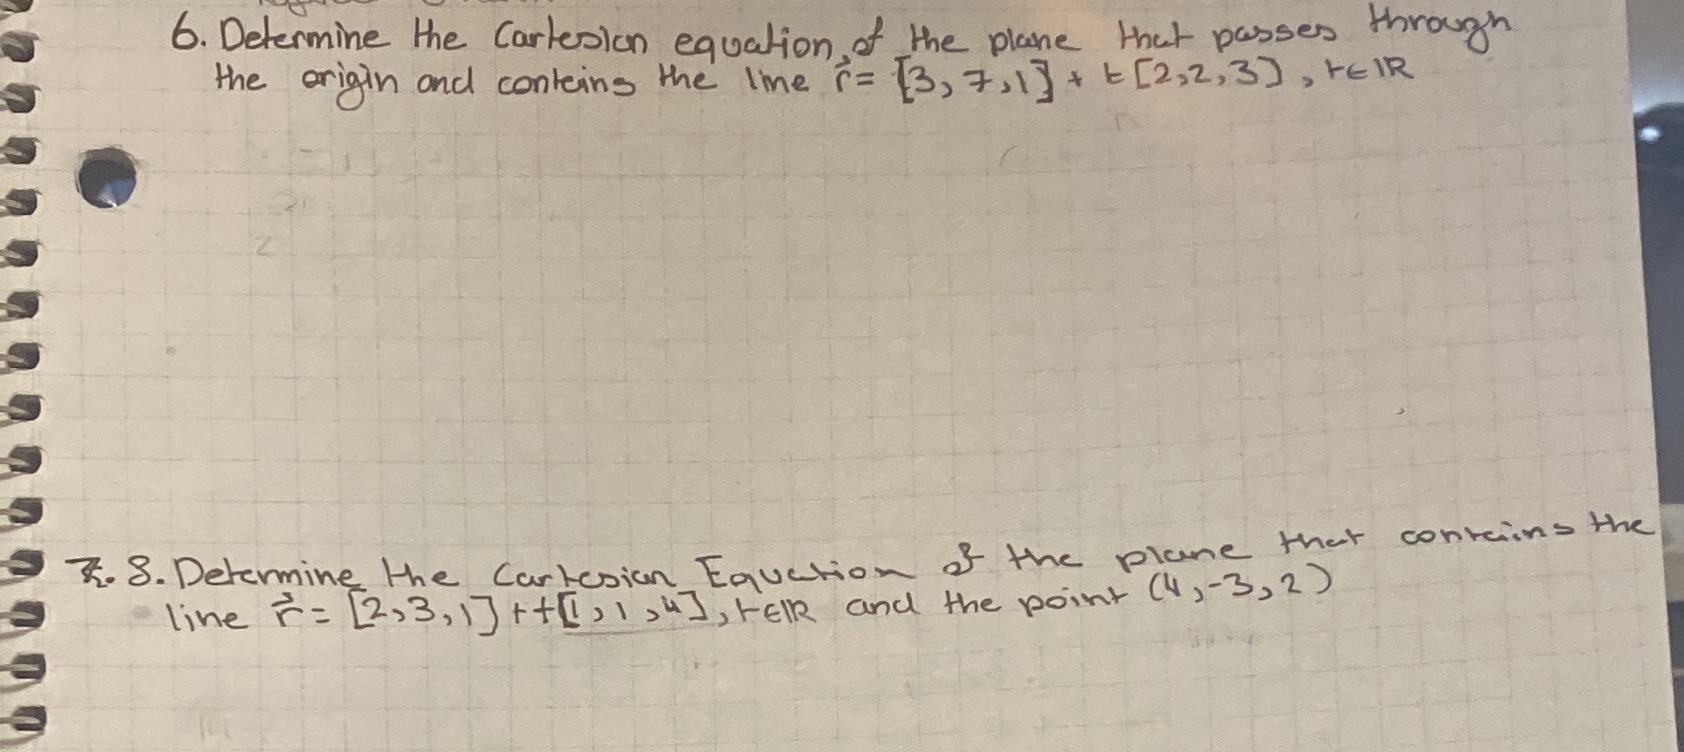 6. Determine the Cartesian equation of the plane that passes through
the origin and contains the line r⃗ = [3, 7, 1] + t [2, 2, 3], t∈ℝ
8. Determine the Cartesian Equation of the plane that contains the
line r⃗ = [2, 3, 1] + t[1, 1, 4], t∈ℝ and the point (4, -3, 2)